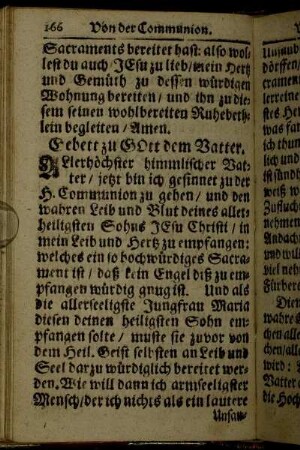 166 Von der Communion.
Sacraments bereitet hast: also wol-
lest du auch / JEsu zu lieb / mein Hertz
und Gemüth zu dessen würdigen
Wohnung bereiten / und ihn zu die-
sem seinen wohlbereiten Ruhebeth-
lein begleiten / Amen.
Gebett zu GOtt dem Vatter.
ALlerhöchster himmlischer Vat-
ter / jetzt bin ich gesinnet zu der
H. Communion zu gehen / und den
wahren Leib und Blut deines aller-
heiligsten Sohns JEsu Christi / in
mein Leib und Hertz zu empfangen:
welches ein so hochwürdiges Sacra-
ment ist / daß kein Engel diß zu em-
pfangen würdig gnug ist. Und als
die allerseeligste Jungfrau Maria
diesen deinen heiligsten Sohn em-
pfangen solte / muste sie zuvor von
dem Heil. Geist selbsten an Leib und
Seel darzu würdiglich bereitet wer-
den. Wie will dann ich armseeligster
Mensch / der ich nichts als ein lautere
Unsau-